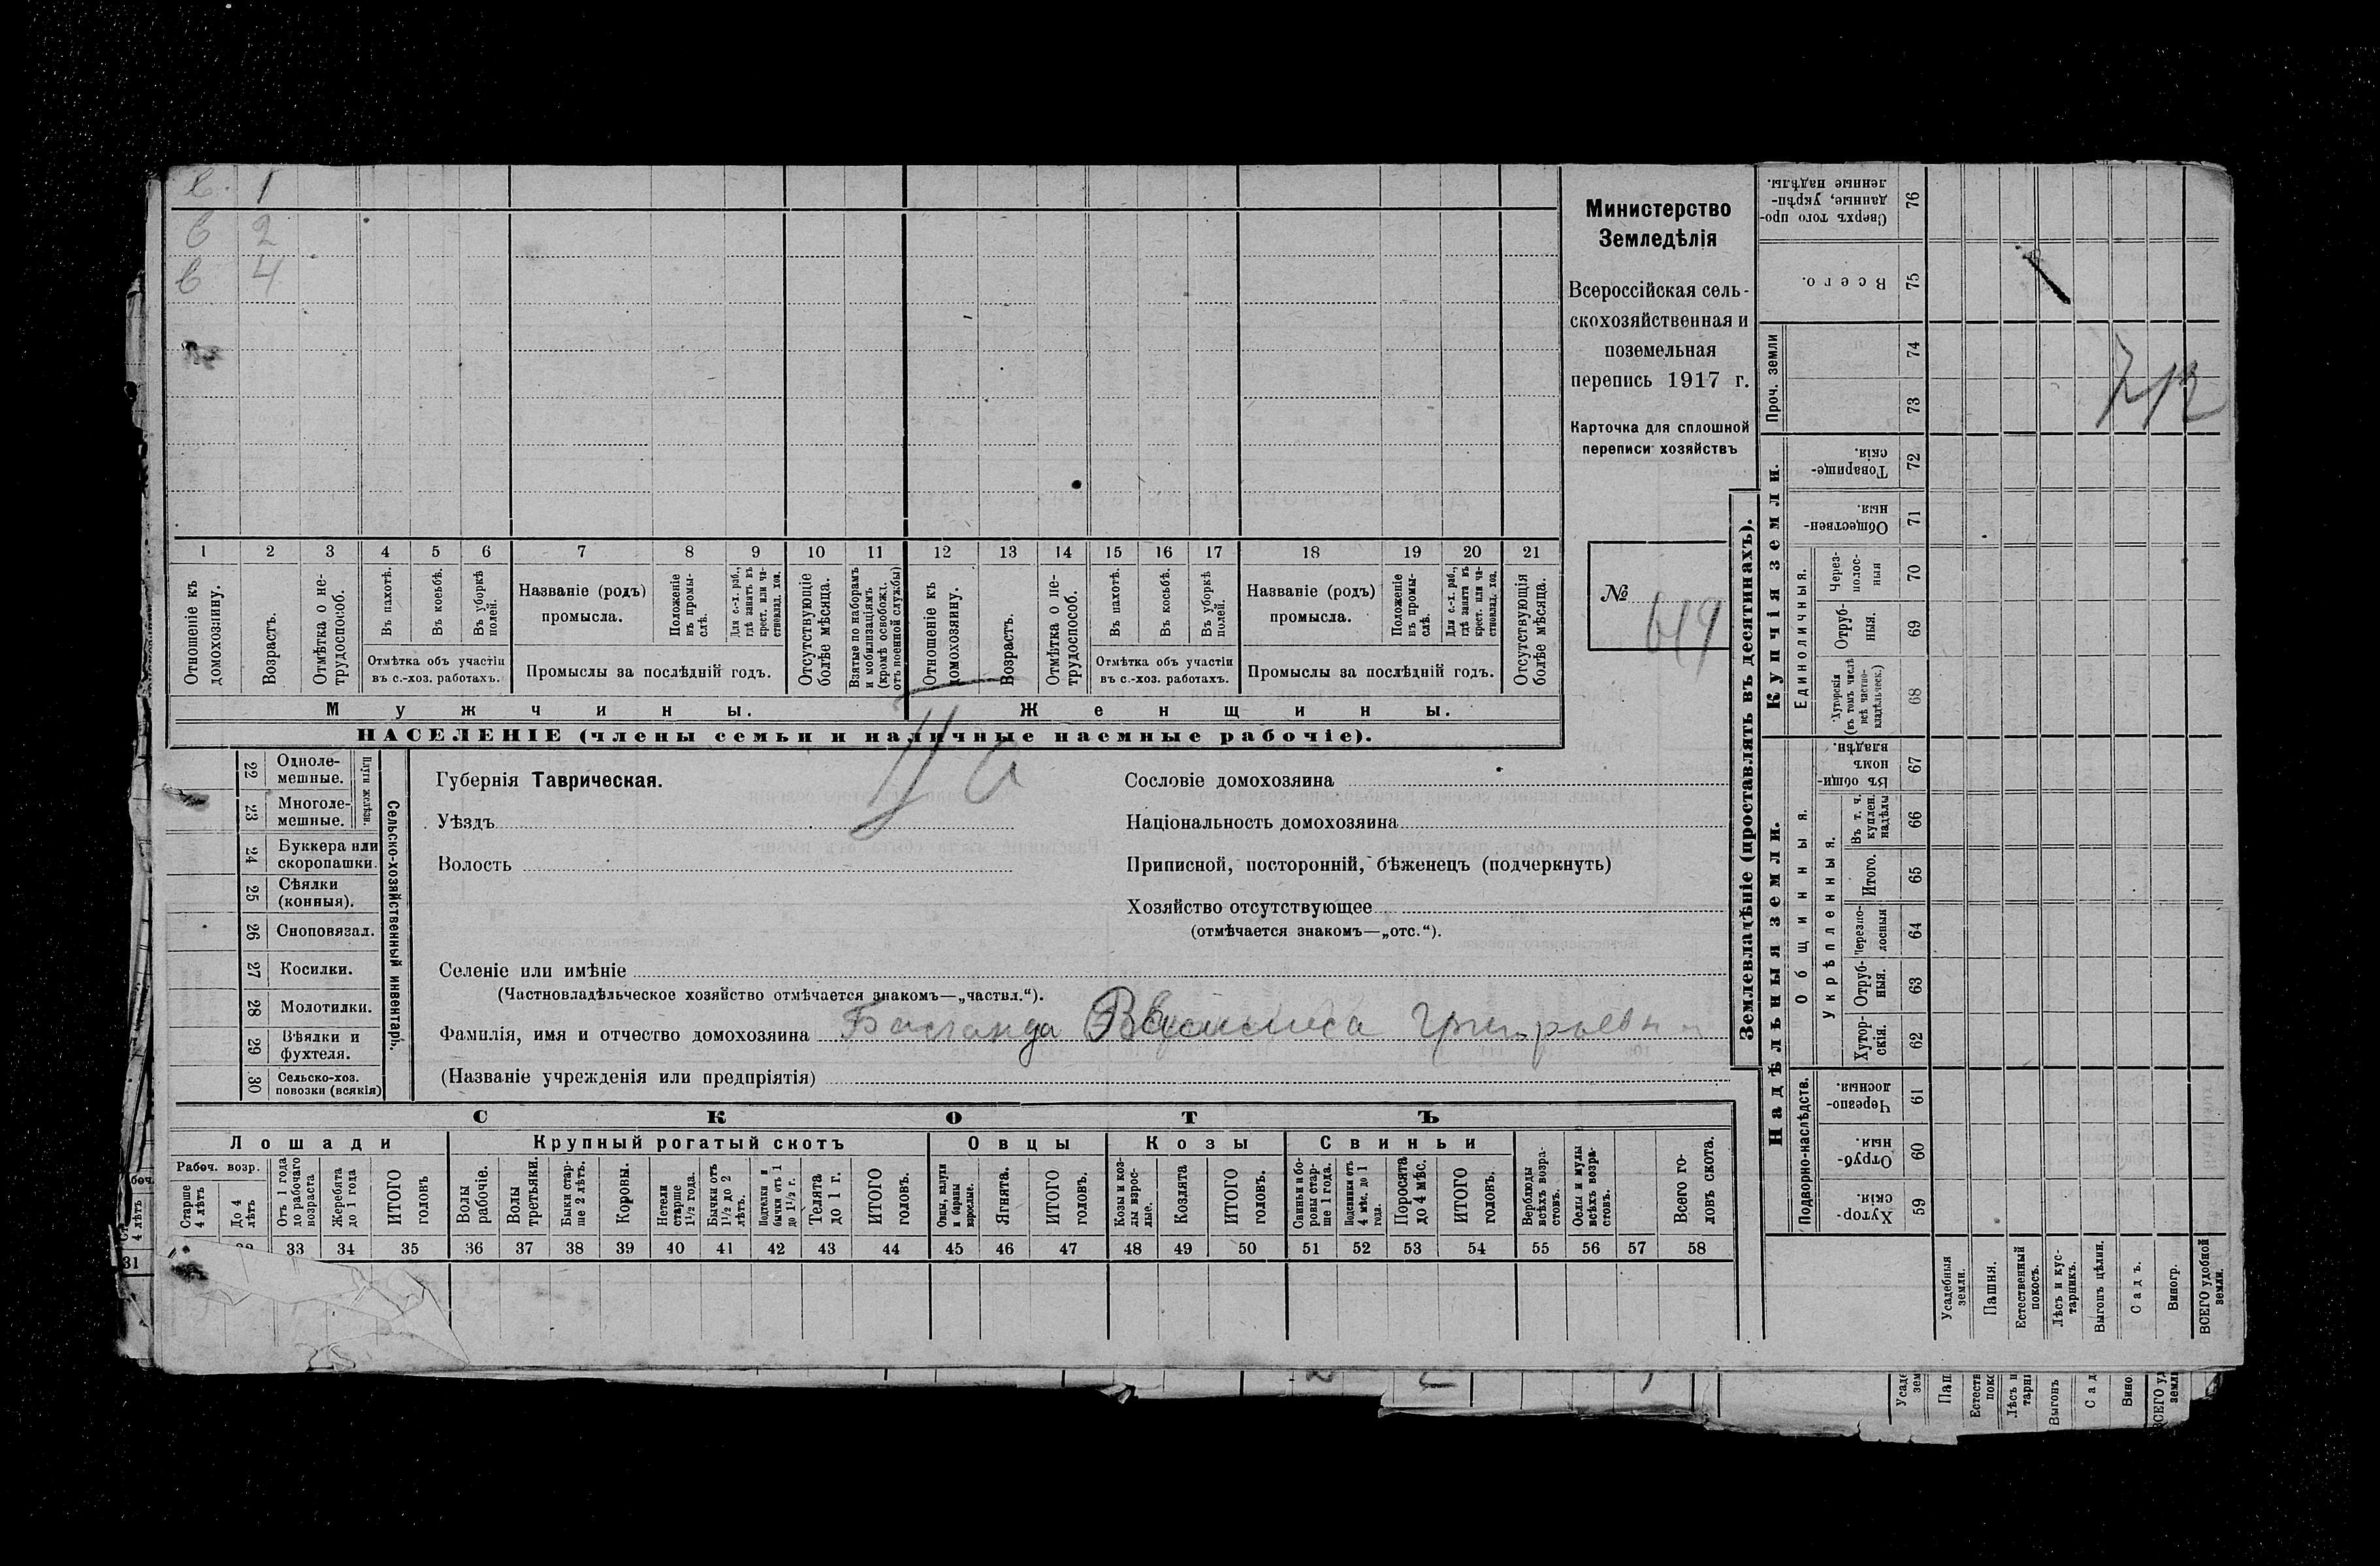 в. 1
в 2
в 4
1 2 3 4 5 6 7 8 9 10 11 12 13 14 15 16 17 18 19 20 21
Отношеніе къ домохозяину.
Возрастъ.
Отмѣтка о нетрудоспособ.
Въ пахотѣ.
Въ косьбѣ.
Въ уборкѣ полей.
Отмѣтка объ участіи въ с.-хоз. работахъ.
Названіе (родъ) промысла.
Положеніе въ промыслѣ.
Для с.-х. раб., гдѣ занятъ въ крест. или частновлад. хоз.
Промыслы за послѣдній годъ.
Отсутствующіе болѣе мѣсяца.
Взятые по наборамъ и мобилизаціямъ (кромѣ освобожд. отъ военной службы)
Отношеніе къ домохозяину.
Возрастъ.
Отмѣтка о нетрудоспособ.
Въ пахотѣ.
Въ косьбѣ.
Въ уборкѣ полей.
Отмѣтка объ участіи въ с.-хоз. работахъ.
Названіе (родъ) промысла.
Положеніе въ промыслѣ.
Для с.-х. раб., гдѣ занята въ крест. или частновлад. хоз.
Промыслы за послѣдній годъ.
Отсутствующія болѣе мѣсяца.
Мужчины.
Женщины.
НАСЕЛЕНІЕ (члены семьи и наличные наемные рабочіе).
Министерство
Земледѣлія
Всероссійская сель-
скохозяйственная и
поземельная
перепись 1917 г.
Карточка для сплошной
переписи хозяйствъ
№
22 Однолемешные.
23 Многолемешные.
Плуги желѣзн.
24 Буккера или скоропашки.
25 Сѣялки (конныя).
26 Сноповязал.
27 Косилки.
28 Молотилки.
29 Вѣялки и фухтеля.
30 Сельско-хоз. повозки (всякія)
Сельско-хозяйственный инвентарь.
Губернія Таврическая.
Уѣздъ
Волость
Сословіе домохозяина
Національность домохозяина
Приписной, посторонній, бѣженецъ (подчеркнуть)
Хозяйство отсутствующее
(отмѣчается знакомъ—„отс.“).
Селеніе или имѣніе
(Частновладѣльческое хозяйство отмѣчается знакомъ—„частвл.“).
Фамилія, имя и отчество домохозяина
(Названіе учрежденія или предпріятія)
СКОТЪ
Лошади
Крупный рогатый скотъ
Овцы
Козы
Свиньи
Рабоч. возр.
Старше 4 лѣтъ
До 4 лѣтъ
Отъ 1 года до рабочаго возраста
Жеребята до 1 года
ИТОГО головъ
Волы рабочіе.
Волы третьяки.
Быки старше 2 лѣтъ.
Коровы.
Нетели старше 1½ года.
Бычки отъ 1½ до 2 лѣтъ.
Подтелки и бычки отъ 1 до 1½ г.
Телята до 1 г.
ИТОГО головъ.
Овцы, валухи и бараны взрослые.
Ягнята.
ИТОГО головъ.
Козы и козлы взрослые.
Козлята
ИТОГО головъ.
Свиньи и боровы старше 1 года.
Подсвинки отъ 4 мѣс. до 1 года.
Поросята до 4 мѣс.
ИТОГО головъ.
Верблюды всѣхъ возрастовъ.
Ослы и мулы всѣхъ возрастовъ.
Всего головъ скота.
33 34 35 36 37 38 39 40 41 42 43 44 45 46 47 48 49 50 51 52 53 54 55 56 57 58
31
Землевладѣніе (проставлять въ десятинахъ).
Купчія земли.
Надѣльныя земли.
Сверхъ того проданные, укрѣпленные надѣлы. 76
Всего. 75
Проч. земли 74
73
Товарищескія. 72
Общественныя. 71
Единоличныя.
Черезполосныя 70
Отрубныя. 69
Хуторскія (въ томъ числѣ всѣ частновладѣльческ.) 68
Общинныя.
Въ общиномъ владѣн. 67
Укрѣпленныя.
Въ т. ч. куплен. надѣлы 66
Итого. 65
Черезполосныя 64
Отрубныя. 63
Хуторскія. 62
Подворно-наслѣдств.
Черезполосныя. 61
Отрубныя. 60
Хуторскія. 59
Усадебныя земли.
Пашня.
Естественный покосъ.
Лѣсъ и кустарникъ.
Выгонъ цѣлин.
Садъ.
Виногр.
ВСЕГО удобной земли.